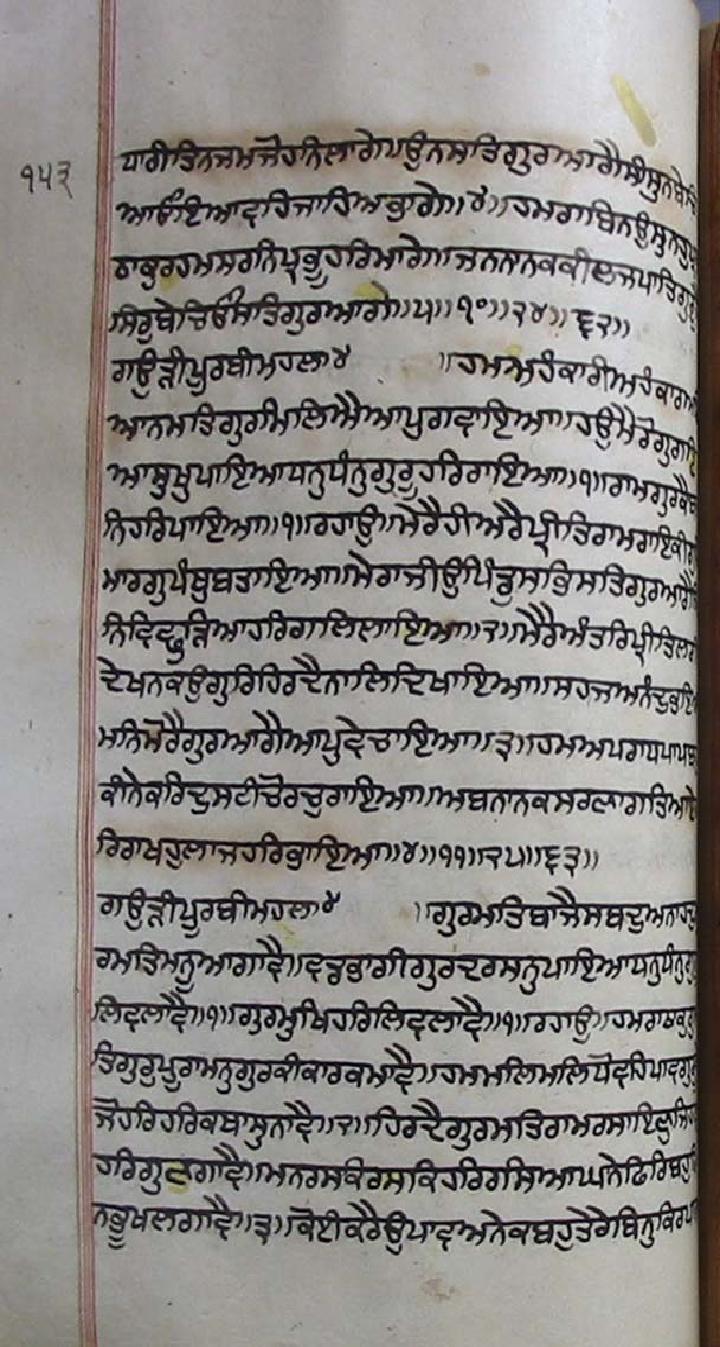 ੧੫੩
ਧਾਰੀ ਤਿਨ ਜਮ ਜੋਹਨਿ ਲਾਗੇ ਪਉਨ ਸਤਿਗੁਰ ਆਗੈ ਸੀਸੁ ਨ ਬੇਚਿ
ਆ ਓਇ ਆਵਹਿ ਜਾਹਿ ਅਭਾਗੇ॥੪॥ਹਮਰਾ ਬਿਨਉ ਸੁਨਹੁ ਪ੍ਰਭ
ਠਾਕੁਰ ਹਮ ਸਰਨਿ ਪ੍ਰਭੂ ਹਰਿ ਮਾਗੇ॥ਜਨ ਨਾਨਕ ਕੀ ਲਜ ਪਾਤਿ ਗੁਰੁ ਹੈ
ਸਿਰੁ ਬੇਚਿਓ ਸਤਿਗੁਰ ਆਗੇ॥੫॥੧੦॥੨੪॥੬੨॥
ਗਉੜੀ ਪੂਰਬੀ ਮਹਲਾ ੪ ॥ਹਮ ਅਹੰਕਾਰੀ ਅਹੰਕਾਰ ਅ
ਆਨ ਮਤਿ ਗੁਰ ਮਿਲਿਐ ਆਪੁ ਗਵਾਇਆ॥ਹਉਮੈ ਰੋਗੁ ਗਇ
ਆ ਸੁਖੁ ਪਾਇਆ ਧਨੁ ਧੰਨੁ ਗੁਰੂ ਹਰਿ ਰਾਇਆ॥੧॥ਰਾਮ ਗੁਰ ਕੈ ਬਚ
ਨਿ ਹਰਿ ਪਾਇਆ॥੧॥ਰਹਾਉ॥ਮੇਰੈ ਹੀਅਰੈ ਪ੍ਰੀਤਿ ਰਾਮ ਰਾਇ ਕੀ ਗੁ
ਮਾਰਗੁ ਪੰਥੁ ਬਤਾਇਆ॥ਮੇਰਾ ਜੀਉ ਪਿੰਡੁ ਸਭੁ ਸਤਿਗੁਰ ਆਗੈ ਜਿ
ਨਿ ਵਿਛੁੜਿਆ ਹਰਿ ਗਲਿ ਲਾਇਆ॥੨॥ਮੇਰੈ ਅੰਤਰਿ ਪ੍ਰੀਤਿ ਲਗੀ
ਦੇਖਨ ਕਉ ਗੁਰਿ ਹਿਰਦੈ ਨਾਲਿ ਦਿਖਾਇਆ॥ਸਹਜ ਅਨੰਦੁ ਭਇ
ਮਨਿ ਮੋਰੈ ਗੁਰ ਆਗੈ ਆਪੁ ਵੇਚਾਇਆ॥੩॥ਹਮ ਅਪਰਾਧ ਪਾਪ ਬ
ਕੀਨੇ ਕਰਿ ਦੁਸਟੀ ਚੋਰ ਚੁਰਾਇਆ॥ਅਬ ਨਾਨਕ ਸਰਣਾਗਤਿ ਆਏ
ਰਿ ਰਾਖਹੁ ਲਾਜ ਹਰਿ ਭਾਇਆ॥੪॥੧੧॥੨੫॥੬੩॥
ਗਉੜੀ ਪੂਰਬੀ ਮਹਲਾ ੪ ॥ਗੁਰਮਤਿ ਬਾਜੈ ਸਬਦੁ ਅਨਾਹਦੁ
ਰਮਤਿ ਮਨੂਆ ਗਾਵੈ॥ਵਡਭਾਗੀ ਗੁਰ ਦਰਸਨੁ ਪਾਇਆ ਧਨੁ ਧੰਨੁ ਗੁ
ਲਿਵ ਲਾਵੈ॥੧॥ਗੁਰਮੁਖਿ ਹਰਿ ਲਿਵ ਲਾਵੈ॥੧॥ਰਹਾਉ॥ਹਮਰਾ ਠਾਕੁਰੁ
ਤਿਗੁਰੁ ਪੂਰਾ ਮਨੁ ਗੁਰ ਕੀ ਕਾਰ ਕਮਾਵੈ॥ਹਮ ਮਲਿ ਮਲਿ ਧੋਵਹਿ ਪਾਵ ਗੁਰੂ
ਜੋ ਹਰਿ ਹਰਿ ਕਥਾ ਸੁਨਾਵੈ॥੨॥ਹਿਰਦੈ ਗੁਰਮਤਿ ਰਾਮ ਰਸਾਇਣੁ ਜਿਹ
ਹਰਿ ਗੁਣ ਗਾਵੈ॥ਮਨ ਰਸਕਿ ਰਸਕਿ ਹਰਿ ਰਸਿ ਆਘਾਨੇ ਫਿਰਿ ਬਹੁ
ਨ ਭੂਖ ਲਗਾਵੈ॥੩॥ਕੋਈ ਕਰੈ ਉਪਾਵ ਅਨੇਕ ਬਹੁਤੇਰੇ ਬਿਨੁ ਕਿਰਪਾ